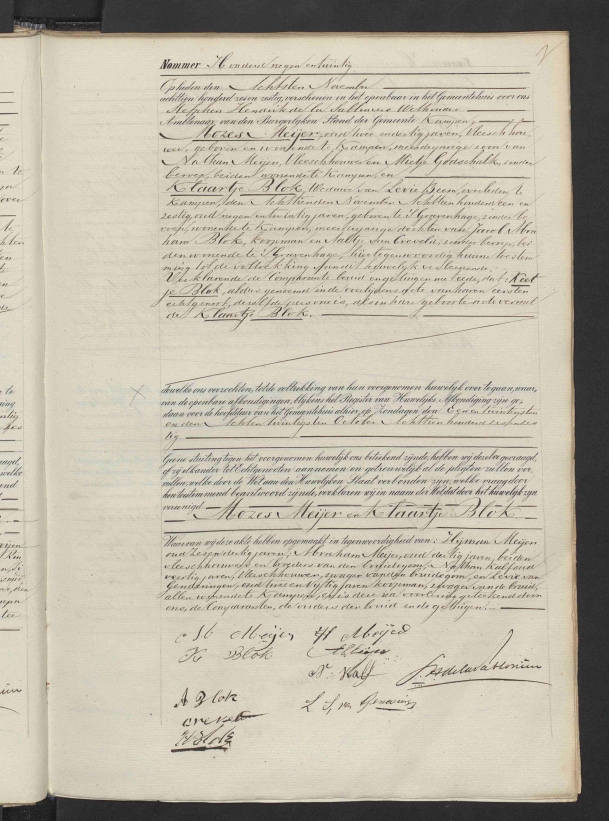 Nommer Honderd negen en twintig
Op heden den Achtsten November
achttien honderd zes en zestig, verschenen in het openbaar in het Gemeentehuis voor ons
Stephen Hendrik de la Sablonière Wethouder
Ambtenaar van den Burgerlijken Stand der Gemeente Kampen,
Mozes Meijer, oud twee en dertig jaren, Vleeschhou
wer, geboren en wonende te Kampen, meerderjarige zoon van
Nathan Meijer, Vleeschhouwer en Mietje Godschalk, zonder
beroep, beiden wonende te Kampen, en
Klaartje Blok, Weduwe van Levie Beem, overleden te
Kampen, den Achttienden November Achttienhonderd een en
zestig, oud negen en twintig jaren, geboren te 's Gravenhage, zonder be
roep, wonende te Kampen, meerderjarige dochter van Jacob Abra
ham Blok, koopman en Saltje van Creveld, zonder beroep, bei
den wonende te 's Gravenhage, hier tegenwoordig hunne toestem
ming tot de voltrekking van dit huwelijk verleenende.
Verklarende de Comparante bruid en getuigen mede, dat Keet
je Blok, aldus genoemd in de overlijdens acte van haren eersten
echtgenoot, dezelfde persoon is, als in hare geboorte acte vermel
de Klaartje Blok.
Dewelke ons verzochten, tot de voltrekking van hun voorgenomen huwelijk over te gaan, waar
van de openbare afkondigingen, blijkens het Register van Huwelijks Afkondiging zijn ge-
daan voor de hoofddeur van het Gemeentehuis alhier, op Zondagen den Een en twintigsten
en den Achten twintigsten October Achttien honderd zes en zes
tig
Geene stuiting tegen het voorgenomen huwelijk ons beteekend zijnde, hebben wij dezelve gevraagd,
of zij elkander tot Echtgenooten aannemen en getrouwelijk al de pligten zullen ver-
vullen, welke door de Wet aan den Huwelijken Staat verbonden zijn, welke vraag door
hun toestemmend beantwoord zijnde, verklaren wij in naam der Wet dat zij door het huwelijk zijn
vereenigd Mozes Meijer en Klaartje Blok.
Waarvan wij deze akte hebben opgemaakt in tegenwoordigheid van: Hijman Meijer
oud zes en dertig jaren, Abraham Meijer, oud dertig jaren, beiden
vleeschhouwers en broeders van den bruidegom, Nathan Kalf oud
veertig jaren, Vleeschhouwer, zwager van den bruidegom, en Levie van
Genderingen, oud twee en vijftig jaren, koopman, zwager van de bruid,
allen wonende te Kampen, en is deze na voorlezing geteekend door
ons, de Comparanten, de ouders der bruid en de getuigen.
M Meijer H Meijer
K Blok A Meijer
N. Kalf
S H de la Sablonière
A Blok
L S van
creveld
H Blok